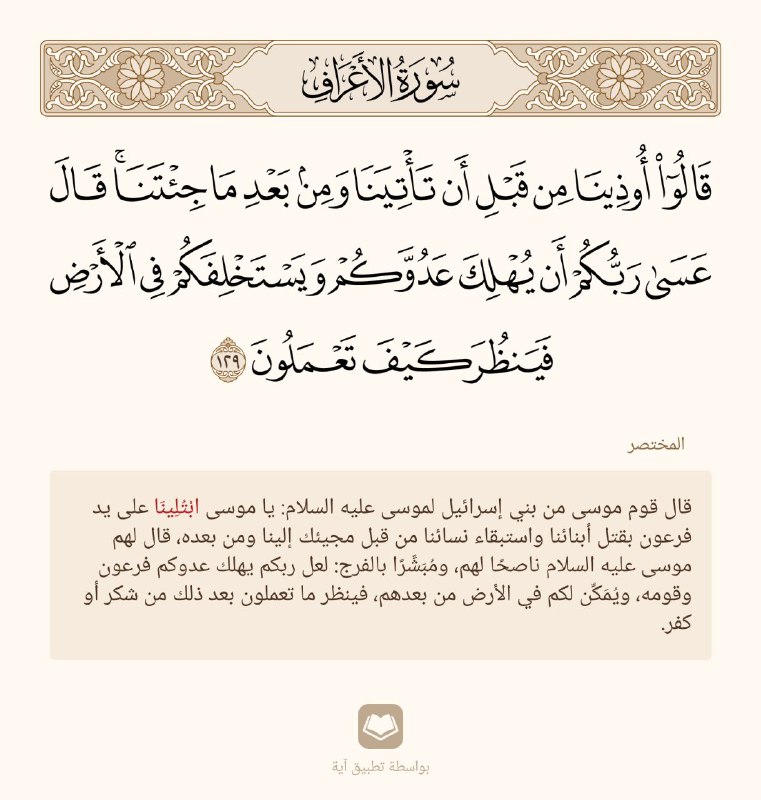 سُورَةُ الأَعۡرَافِ
قَالُوٓاْ أُوذِينَا مِن قَبۡلِ أَن تَأۡتِيَنَا وَمِنۢ بَعۡدِ مَا جِئۡتَنَاۚ قَالَ
عَسَىٰ رَبُّكُمۡ أَن يُهۡلِكَ عَدُوَّكُمۡ وَيَسۡتَخۡلِفَكُمۡ فِي ٱلۡأَرۡضِ
فَيَنظُرَ كَيۡفَ تَعۡمَلُونَ ١٢٩
المختصر
قال قوم موسى من بني إسرائيل لموسى عليه السلام: يا موسى ابْتُلِينَا على يد
فرعون بقتل أبنائنا واستبقاء نسائنا من قبل مجيئك إلينا ومن بعده، قال لهم
موسى عليه السلام ناصحًا لهم، ومُبَشِّرًا بالفرج: لعل ربكم يهلك عدوكم فرعون
وقومه، ويُمَكِّن لكم في الأرض من بعدهم، فينظر ما تعملون بعد ذلك من شكر أو
كفر.
بواسطة تطبيق آية